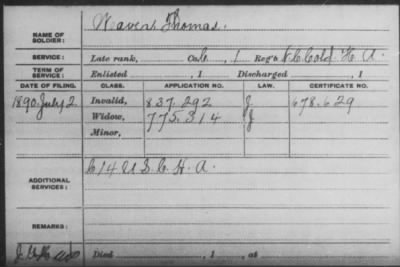 NAME OF SOLDIER: Wavers Thomas.
SERVICE: Late rank, Co. 6, 1 Reg't Cold H A.
TERM OF SERVICE: Enlisted , 1 Discharged , 1
DATE OF FILING. CLASS. APPLICATION NO. LAW. CERTIFICATE NO.
1890. July 2 Invalid, 837.292 J. 678.629
Widow, 775.314 J
Minor,
ADDITIONAL SERVICES: C 14 U S C H. A.
REMARKS:
Died , 1 , at